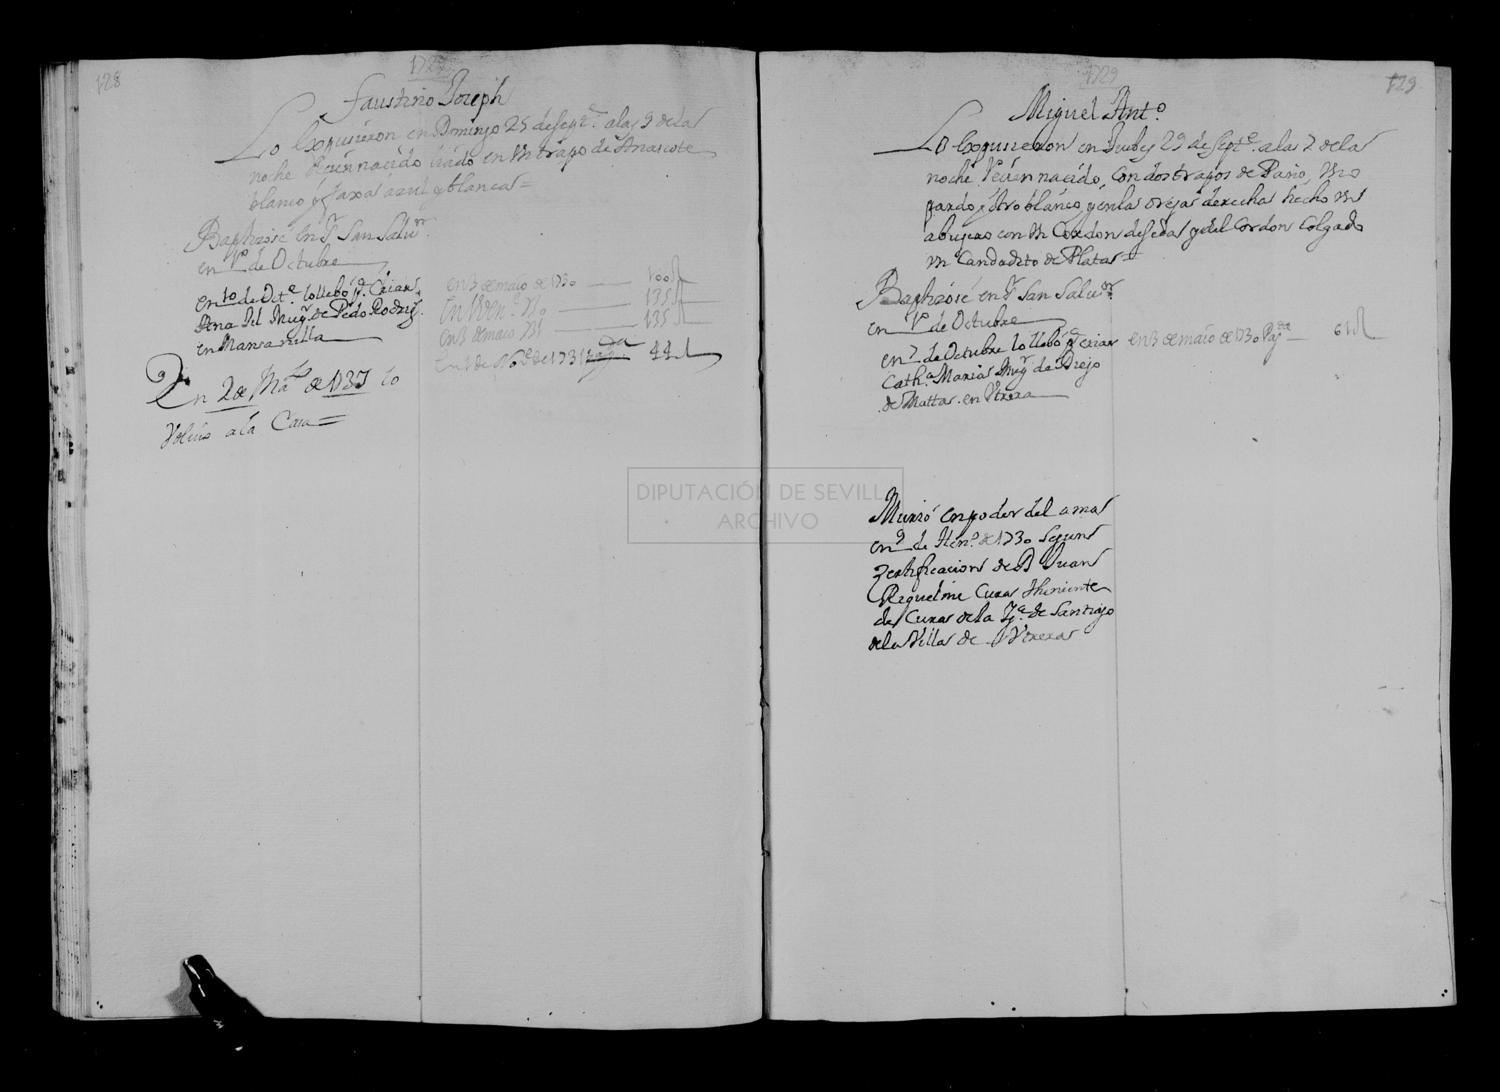 128
1729
Faustino Joseph
Lo Expusieron en Domingo 25 de Sepre. a las 9 de la
noche Recien nacido liado en Un trapo de Anascote
blanco y faxa azul y blanca=
Baptizose en Sr. San Salvr.
en 1o de Octubre
en 10 de Octe. lo llebo pa. Criar
Ana Mugr. de Pedro Rodrigz.
en Mansanilla
En 2 de de 1737 lo
Volvio a la Casa=
en 3 de maio de 1730 — 100
en de Eno. — 135
en 3 de maio 31 — 135
en de Noe. de 1731 pagda 44
1729
129
Miguel Anto.
Lo Expusieron en Juebes 29 de Septe. a las 7 de la
noche Recien nacido, Con dos trapos de Paño, Uno
pardo y otro blanco, y en la oreja derecha hecho Un
abujero con Un Cordon de seda y del Cordon Colgado
Un Candadito de Plata=
Baptizose en Sr. San Salvr.
en 1o de Octubre
en 7 de Octubre lo llebo pa. criar
Catha. Maria Mugr. de Diego
de Matta en Utrera
en 3 de maio de 1730 Pagda — 61
Murio en poder del ama
en 9 de Heno. de 1730 segun
Zertificacion de Dn Juan
Riquelme Cura theniente
de Cura de la Yga. de Santiago
de la Villa de Utrera
DIPUTACIÓN DE SEVILLA
ARCHIVO